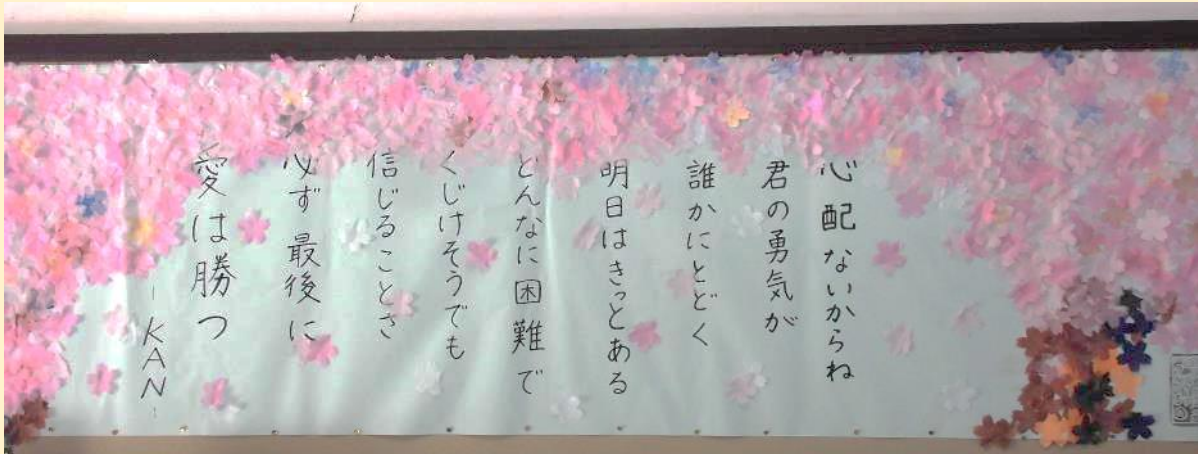 心配ないからね
君の勇気が
誰かにとどく
明日はきっとある
どんなに困難で
くじけそうでも
信じることさ
必ず最後に
愛は勝つ
-KAN-